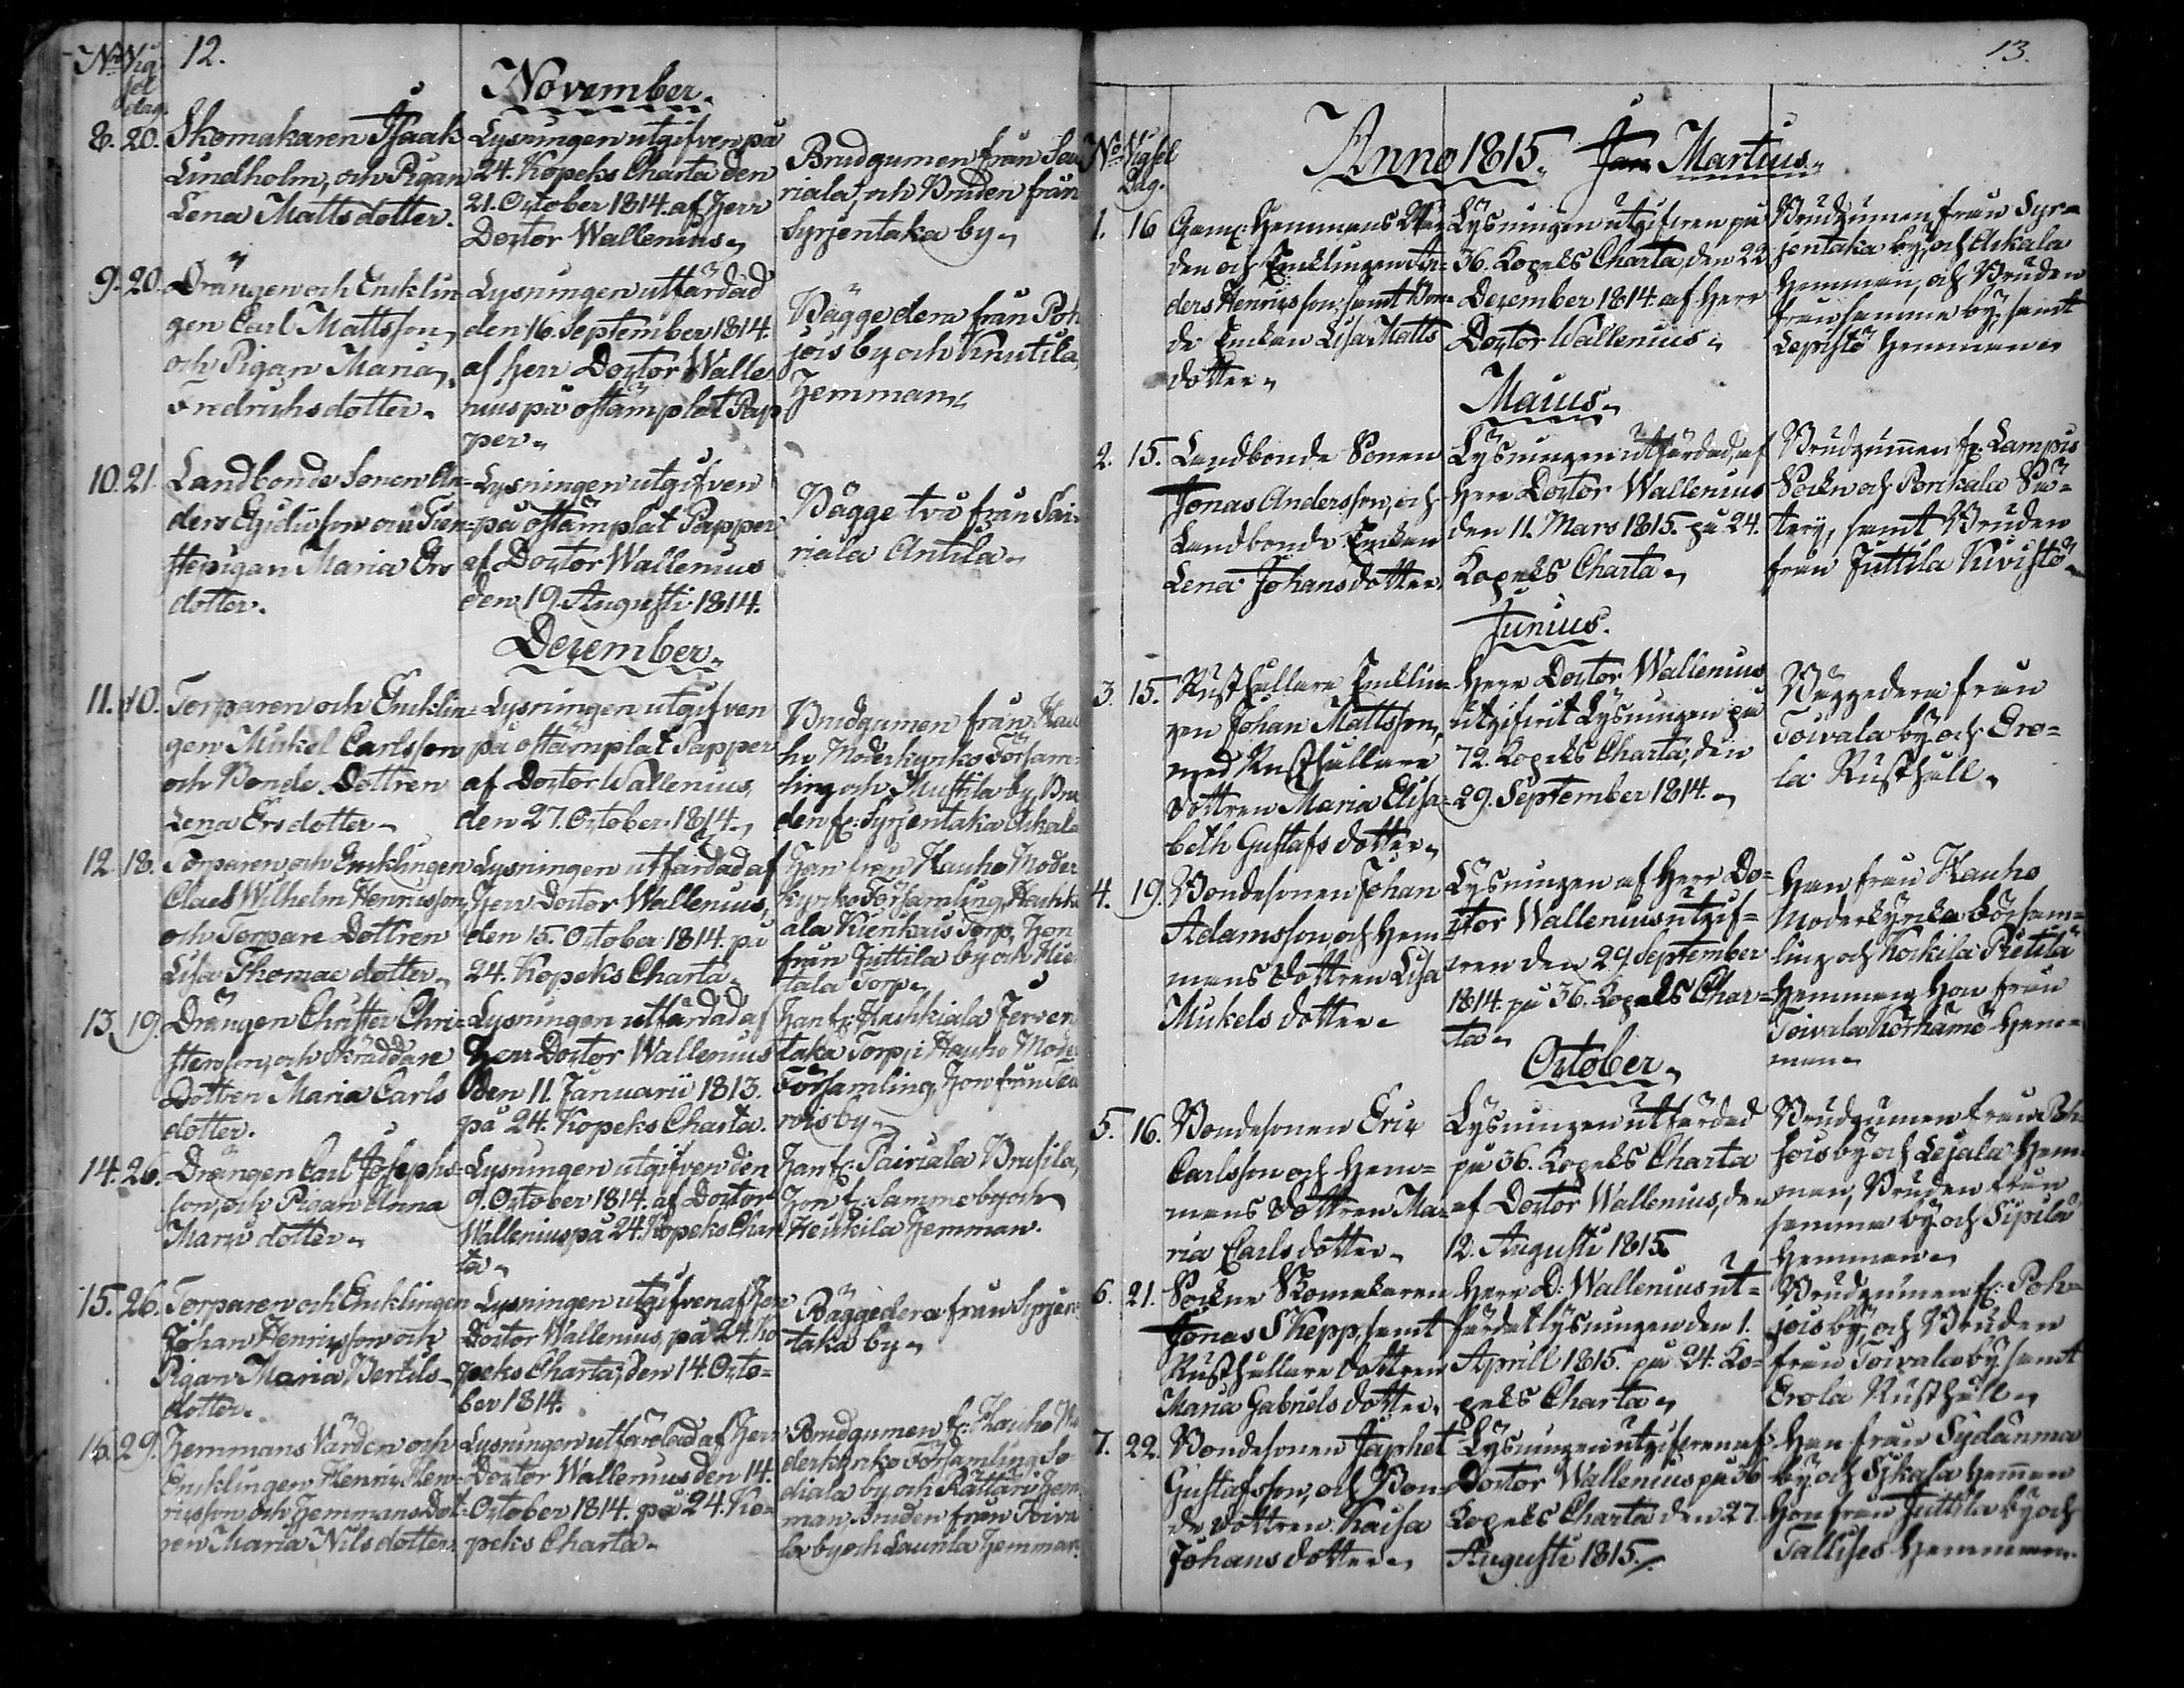 12.
No Vig
sel
dag.
November.
8. 20. Skomakaren Isaak
Lindholm, och Pigan
Lena Mattsdotter.
Lysningen utgifven på
24. Kopeks Charta den
21. October 1814. af Herr
Doctor Wallenius,
Brudgumen från Sai
riala, och Bruden från
Syrjentaka by,
9. 20. Drängen och Encklin
gen Carl Mattsson,
och Pigan Maria
Fredrichsdotter.
Lysningen utfärdad
den 16. September 1814.
af Herr Doctor Walle
nius på ostämplat Pap
per.
Bägge dera från Poh
jois by och Knutila
Hemman.
10. 21. Landbonde Sonen An=
ders Egidiison och Tien=
stepigan Maria Ers
dotter.
Lysningen utgifven
på ostämplat Papper
af Doctor Wallenius
den 19. Augusti 1814.
Bägge två från Sai=
riala Antila.
December.
11. 10. Torparen och Encklin=
gen Mickel Carlsson
och Bonde Dottren
Lena Ersdotter.
Lysningen utgifven
på ostämplat Papper
af Doctor Wallenius,
den 27. October 1814.
Brudgumen från Hau
ho Moderkyrko Församl
ling och Muttila by, Bru
den fr. Syrjentaka Askala
12. 18. Torparen och Encklingen
Claes Wilhelm Henricsson
och Torpare Dottren
Lisa Thomae dotter.
Lysningen utfärdad af
Herr Doctor Wallenius,
den 15. October 1814. på
24. Kopeks Charta.
Han från Hauho Moder
kyrko Församling, Hachki
ala Torp, Hon
från Juttila by och Hie
tala Torp.
13. 19. Drängen Christer Chri=
sterson, och Skräddare
Dottren Maria Carls
dotter.
Lysningen utfärdad af
Herr Doctor Wallenius
den 11. Januarii 1813.
på 24. Kopeks Charta.
Han fr. Hachkiala Jerven
taka Torp i Hauho Moder
Församling, Hon från
ois by.
14. 26. Drängen Carl Josephs=
son, och Pigan Anna
Maria dotter.
Lysningen utgifven den
9. October 1814. af Doctor
Wallenius på 24. Kopeks Char
ta.
Han fr. Sairiala Brusila,
Hon fr. Samme by och
Heickila Hemman.
15. 26. Torparen och Encklingen
Johan Henricsson och
Pigan Maria Bertils
dotter.
Lysningen utgifven af Herr
Doctor Wallenius, på 24. Ko
peks Charta, den 14. Octo=
ber 1814.
Bäggedera från Syrjen
taka by.
16. 29. Hemmans Värden och
Encklingen Henric Hen=
ricsson, och Hemmans Dot
ren Maria Nils dotter.
Lysningen utfärdad af Herr
Doctor Wallenius den 14.
October 1814. på 24. Ko=
peks Charta.
Brudgumen fr. Hauho Mo
derkyrko Församling
diala by och Rättäri Hem
man, Bruden från Toiva
la by och Launla Hemman.
13.
No Vigsel
Dag.
Anno 1815. Jan Martius.
1. 16 Hemmans Wär
den och Encklingen An=
ders Henricsson, samt Bon=
de Enckan Lisa Matts
dotter.
Lysningen utgifven på
36. Kopeks Charta, den 22.
December 1814. af Herr
Doctor Wallenius.
Brudgumen från Syr=
jentaka by, och Askala
Hemman, och Bruden
från samma by, samt
Lepistö Hemman.
Maius.
2. 15. Landbonde Sonen
Jonas Andersson, och
Landbonde Enckan
Lena Johansdotter.
Lysningen utfärdad af
Herr Doctor Wallenius
den 11. Mars 1815. på 24.
Kopeks Charta.
Brudgumen fr. Lampis
Sockn och Porckala Sä=
tery, samt Bruden
från Juttila Kivistö.
Junius.
3. 15. Rusthållare Encklin=
gen Johan Mattsson,
med Rusthållare
Dottren Maria Elisa=
beth Gustafs dotter.
Herr Doctor Wallenius
utgifvit Lysningen på
72. Kopeks Charta, den
29. September 1814.
Bäggedera från
Toivala by och Ero=
la Rusthåll.
4. 19. Bondesonen Johan
Adamsson, och Hem=
mans Dottren Lisa
Mickels dotter.
Lysningen af Herr Do=
ctor Wallenius utgif=
ven den 29. September
1814. på 36. Kopeks Char=
ta.
Han från Hauho
Moderkyrko Församl=
ling och Kockila Pietilä
Hemman, Hon från
Toivala Körkämö Hem=
man.
October.
5. 16. Bondesonen Eric
Carlsson och Hem=
mans Dottren Ma=
ria Carls dotter.
Lysningen utfärdad
på 36. Kopeks Charta
af Doctor Wallenius, den
12. Augusti 1815.
Brudgumen från Poh
jois by och Lejala Hem
man, Bruden från
samma by och Sipilä
Hemman.
6. 21. Sockne Skomakaren
Jonas Skepp, samt
Rusthållare Dottren
Maria Gabriels dotter.
Herr D. Wallenius ut=
färdat lysningen den 1.
Aprill 1815. på 24. Ko=
peks Charta.
Brudgumen fr. Poh=
jois by, och Bruden
från Toivala by samt
Erola Rusthåll.
7. 22. Bondesonen Japhet
Gustafsson, och Bon=
de dottren Kaisa
Johans dotter.
Lysningen utgifven af
Doctor Wallenius på 36
Kopeks Charta den 27.
Augusti 1815.
Han från Sydänma
by och Hemman
Hon från Juttila by och
Tallises Hemman.